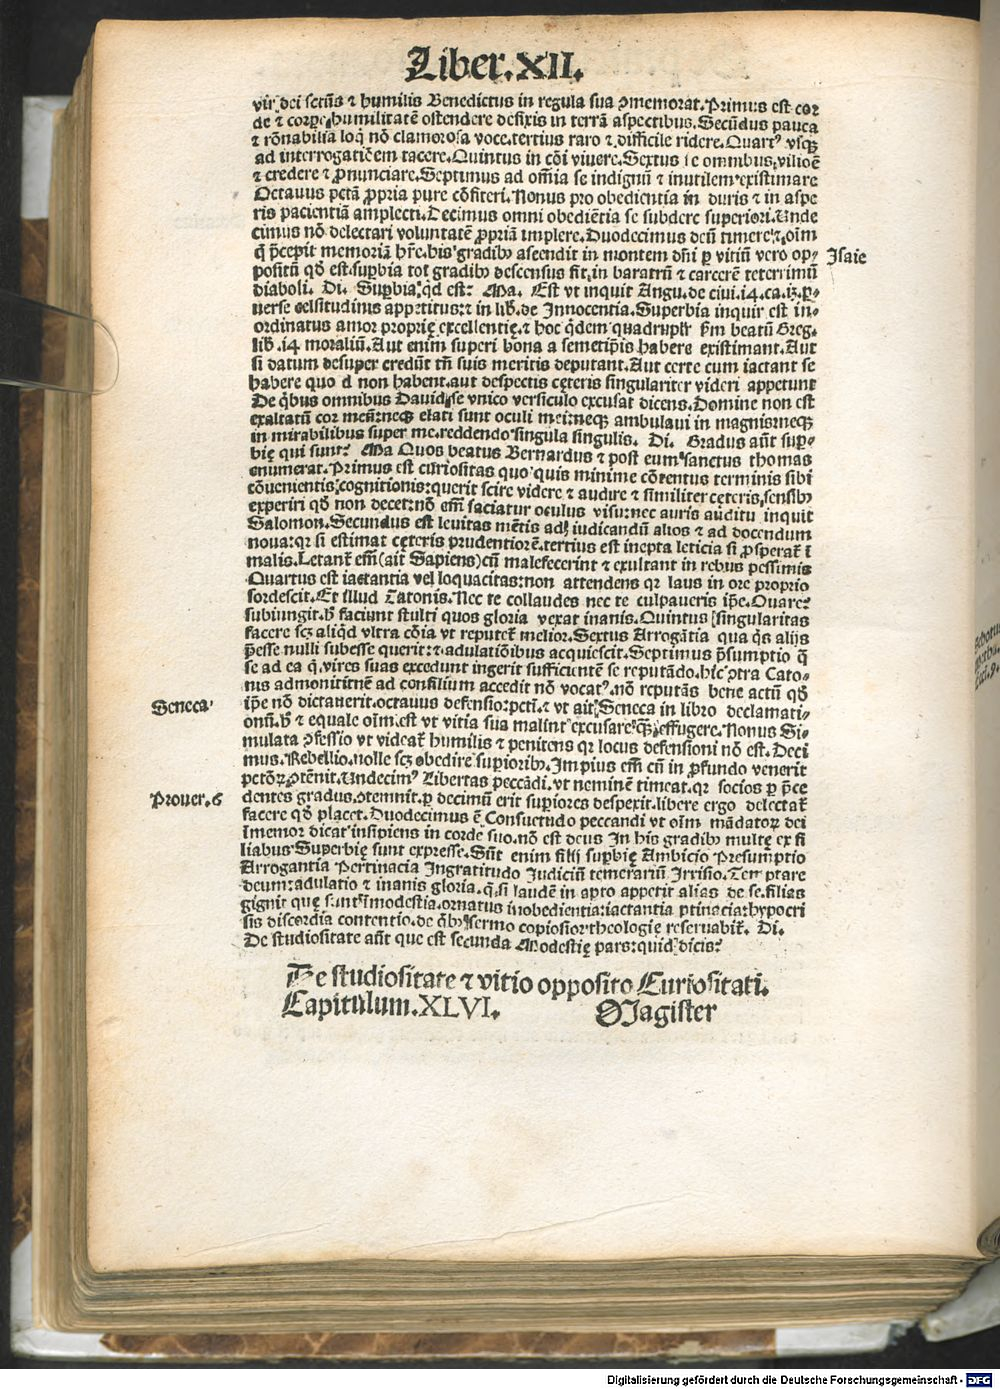 Liber.XII.
vir dei sctūs ⁊ humilis Benedictus in regula sua ꝯmemorat. Primus est cor
de ⁊ corpe humilitatē ostendere defixis in terrā aspectibus. Secūdus pauca
⁊ rōnabilia loqͥ nō clamorosa voce. tertius raro ⁊ difficile ridere. Quartꝰ vsqꝫ
ad interrogatiōem tacere. Quintus in cōi viuere. Sextus se omnibus vilioē
⁊ credere ⁊ ꝓnunciare. Septimus ad om̄ia se indignū ⁊ inutilem existimare
Octauus pctā ꝓpria pure cōfiteri. Nonus pro obedientia in duris ⁊ in aspe
ris pacientiā amplecti. Decimus omni obediētia se subdere superiori. Unde
cimus nō delectari voluntatē ꝓpriā implere. Duodecimus deū timere ⁊ oīm
q̄ p̄cepit memoriā hr̄e. his gradibꝰ ascendit in montem dn̄i ꝑ vitiū vero op-
positū qd̄ est supbia tot gradibꝰ descensus fit in baratrū ⁊ carcerē teterrimū
diaboli. Di. Supbia qd est? Ma. Est vt inquit Augu. de ciui. 14. ca. 13. ꝑ-
uerse celsitudinis appetitus: ⁊ in lib. de Innocentia. Superbia inquit est in-
ordinatus amor proprię excellentię. ⁊ hoc qͥdem quadrupłr s̄m beatū Greg.
lib. 14 moraliū. Aut enim superi bona a semetip̄is habere existimant. Aut
si datum desuper credūt tn̄ suis meritis deputant. Aut certe cum iactant se
habere quo d non habent. aut despectis cęteris singulariter videri appetunt
De qͥbus omnibus Dauid se vnico versiculo excusat dicens. Domine non est
exaltatū cor meū: neqꝫ elati sunt oculi mei: neqꝫ ambulaui in magnis: neqꝫ
in mirabilibus super me. reddendo singula singulis. Di. Gradus aūt sup-
bię qui sunt? Ma Quos beatus Bernardus ⁊ post eum sanctus thomas
enumerat. Primus est curiositas quo quis minime cōtentus terminis sibi
cōuenientis cognitionis: querit scire videre ⁊ audire ⁊ similiter cęteris sensibꝰ
experiri qd̄ non decet: nō em̄ saciatur oculus visu: nec auris auditu inquit
Salomon. Secundus est leuitas mētis ad iudicandū alios ⁊ ad docendum
noua: qr si estimat cęteris prudentiorē. tertius est inepta leticia si ꝓsperat̄ ī
malis. Letant̄ em̄ (ait Sapiens) cū malefecerint ⁊ exultant in rebus pessimis
Quartus est iactantia vel loquacitas: non attendens qr laus in ore proprio
sordescit. Et illud Catonis. Nec te collaudes nec te culpaueris ip̄e. Quare?
subiungit. h̄ faciunt stulti quos gloria vexat inanis. Quintus singularitas
facere scꝫ aliqͥd vltra cōia vt reputet̄ melior. Sextus Arrogātia qua qͥs alijs
p̄esse nulli subesse querit: ⁊ adulatiōibus acquiescit. Septimus p̄sumptio q̄
se ad ea q̄ vires suas excedunt ingerit sufficientē se reputādo. hic ꝯtra Cato-
nis admonitiōnē ad consilium accedit nō vocatꝰ. nō reputās bene actū qd̄
ip̄e nō dictauerit. octauus defensio: pcti. ⁊ vt ait Seneca in libro declamati-
onū. h̄ ⁊ equale oīm est vt vitia sua malint excusare qͣꝫ effugere. Nonus Si-
mulata ꝓfessio vt videat̄ humilis ⁊ penitens qr locus defensioni nō est. Deci
mus. Rebellio. nolle scꝫ obedire supioribꝰ. Impius em̄ cū in ꝓfundo venerit
petōꝝ ꝯtēnit. Undecimꝰ Libertas peccādi. vt neminē timeat. qr socios ꝑ p̄ce
dentes gradus. ꝯtemnit. ꝑ decimū erit supiores despexit. libere ergo delectat̄
facere qd̄ placet. Duodecimus ē Consuetudo peccandi vt oīm mādatoꝝ dei
īmemor dicat insipiens in corde suo. nō est deus In his gradibꝰ multę ex fi
liabus Superbię sunt expresse. Sūt enim filij supbię Ambicio Presumptio
Arrogantia Pertinacia Ingratitudo Judiciū temerariū Irrisio. Tem ptare
deum: adulatio ⁊ inanis gloria. q̄ si laudē in apto appetit alias de se. filias
gignit quę sunt īmodestia. ornatus inobedientia: iactantia ptinacia: hypocri
sis discordia contentio. de qͥbꝰ sermo copiosior theologię reseruabit̄. Di.
De studiositate aūt que est secunda Modestię pars: quid dicis?
De studiositate ⁊ vitio opposito Curiositati.
Capitulum. XLVI. Magister
Isaie
Seneca
Prouer. 6
Digitalisierung gefördert durch die Deutsche Forschungsgemeinschaft - DFG